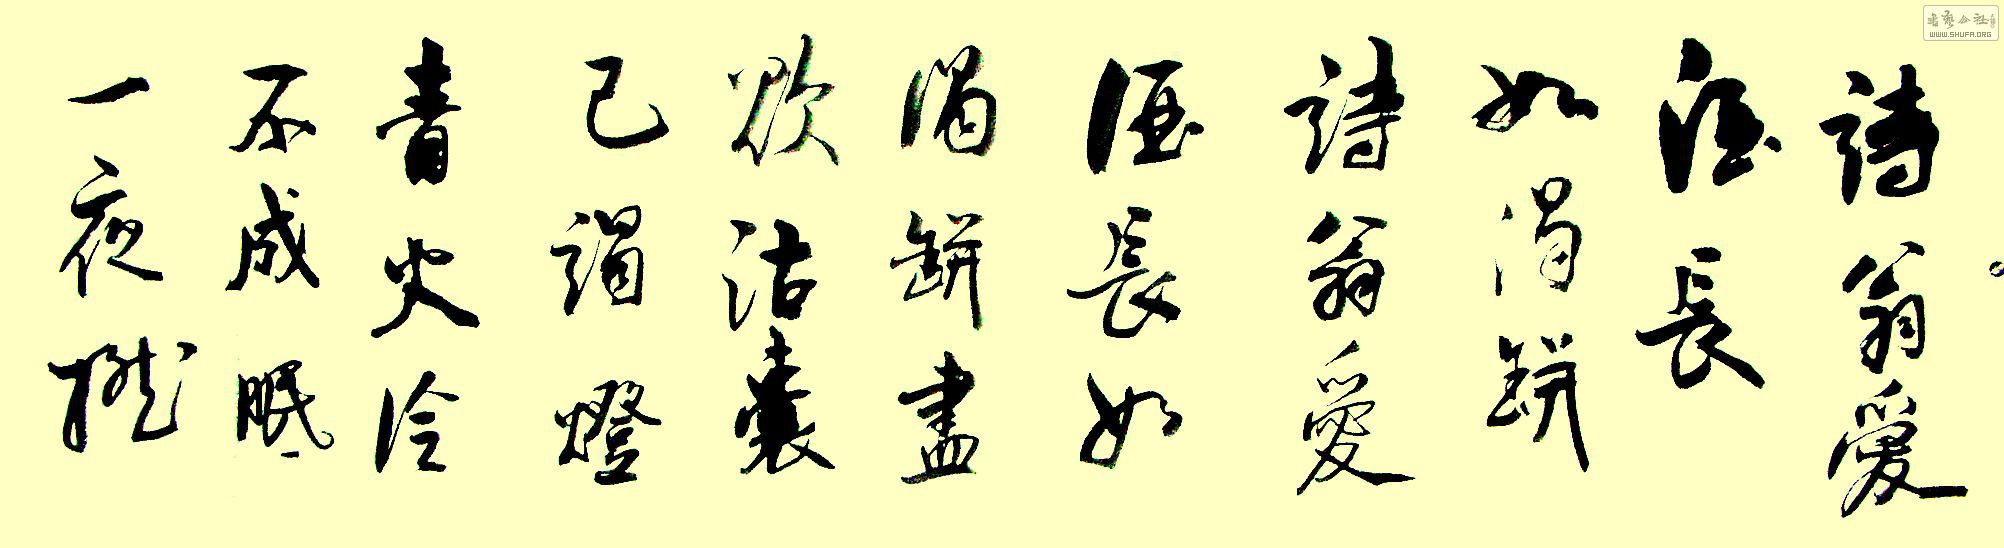 詩翁愛
酒長
如渴缾
詩翁愛
酒長如
渴缾盡
欲沽囊
已竭燈
青火冷
不成眠
一夜撚
書藝公社
WWW.SHUFA.ORG